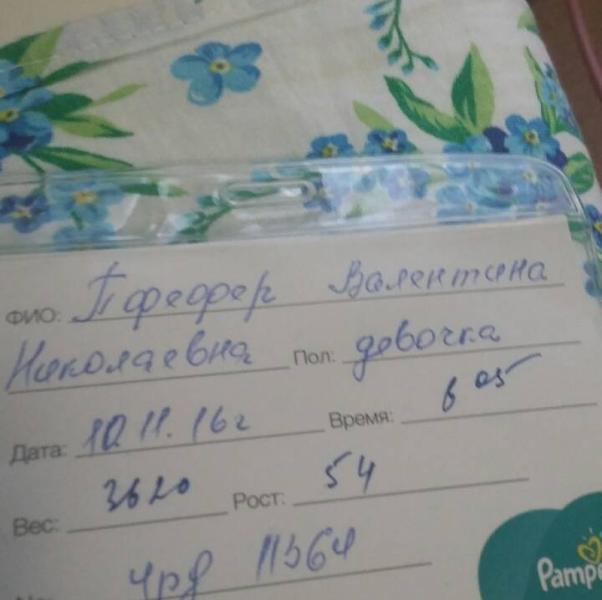 ФИО: Пфефер Валентина
Николаевна Пол: девочка
Дата: 10.11.16г Время: 6 05
Вес: 3620 Рост: 54
11564
Pampe